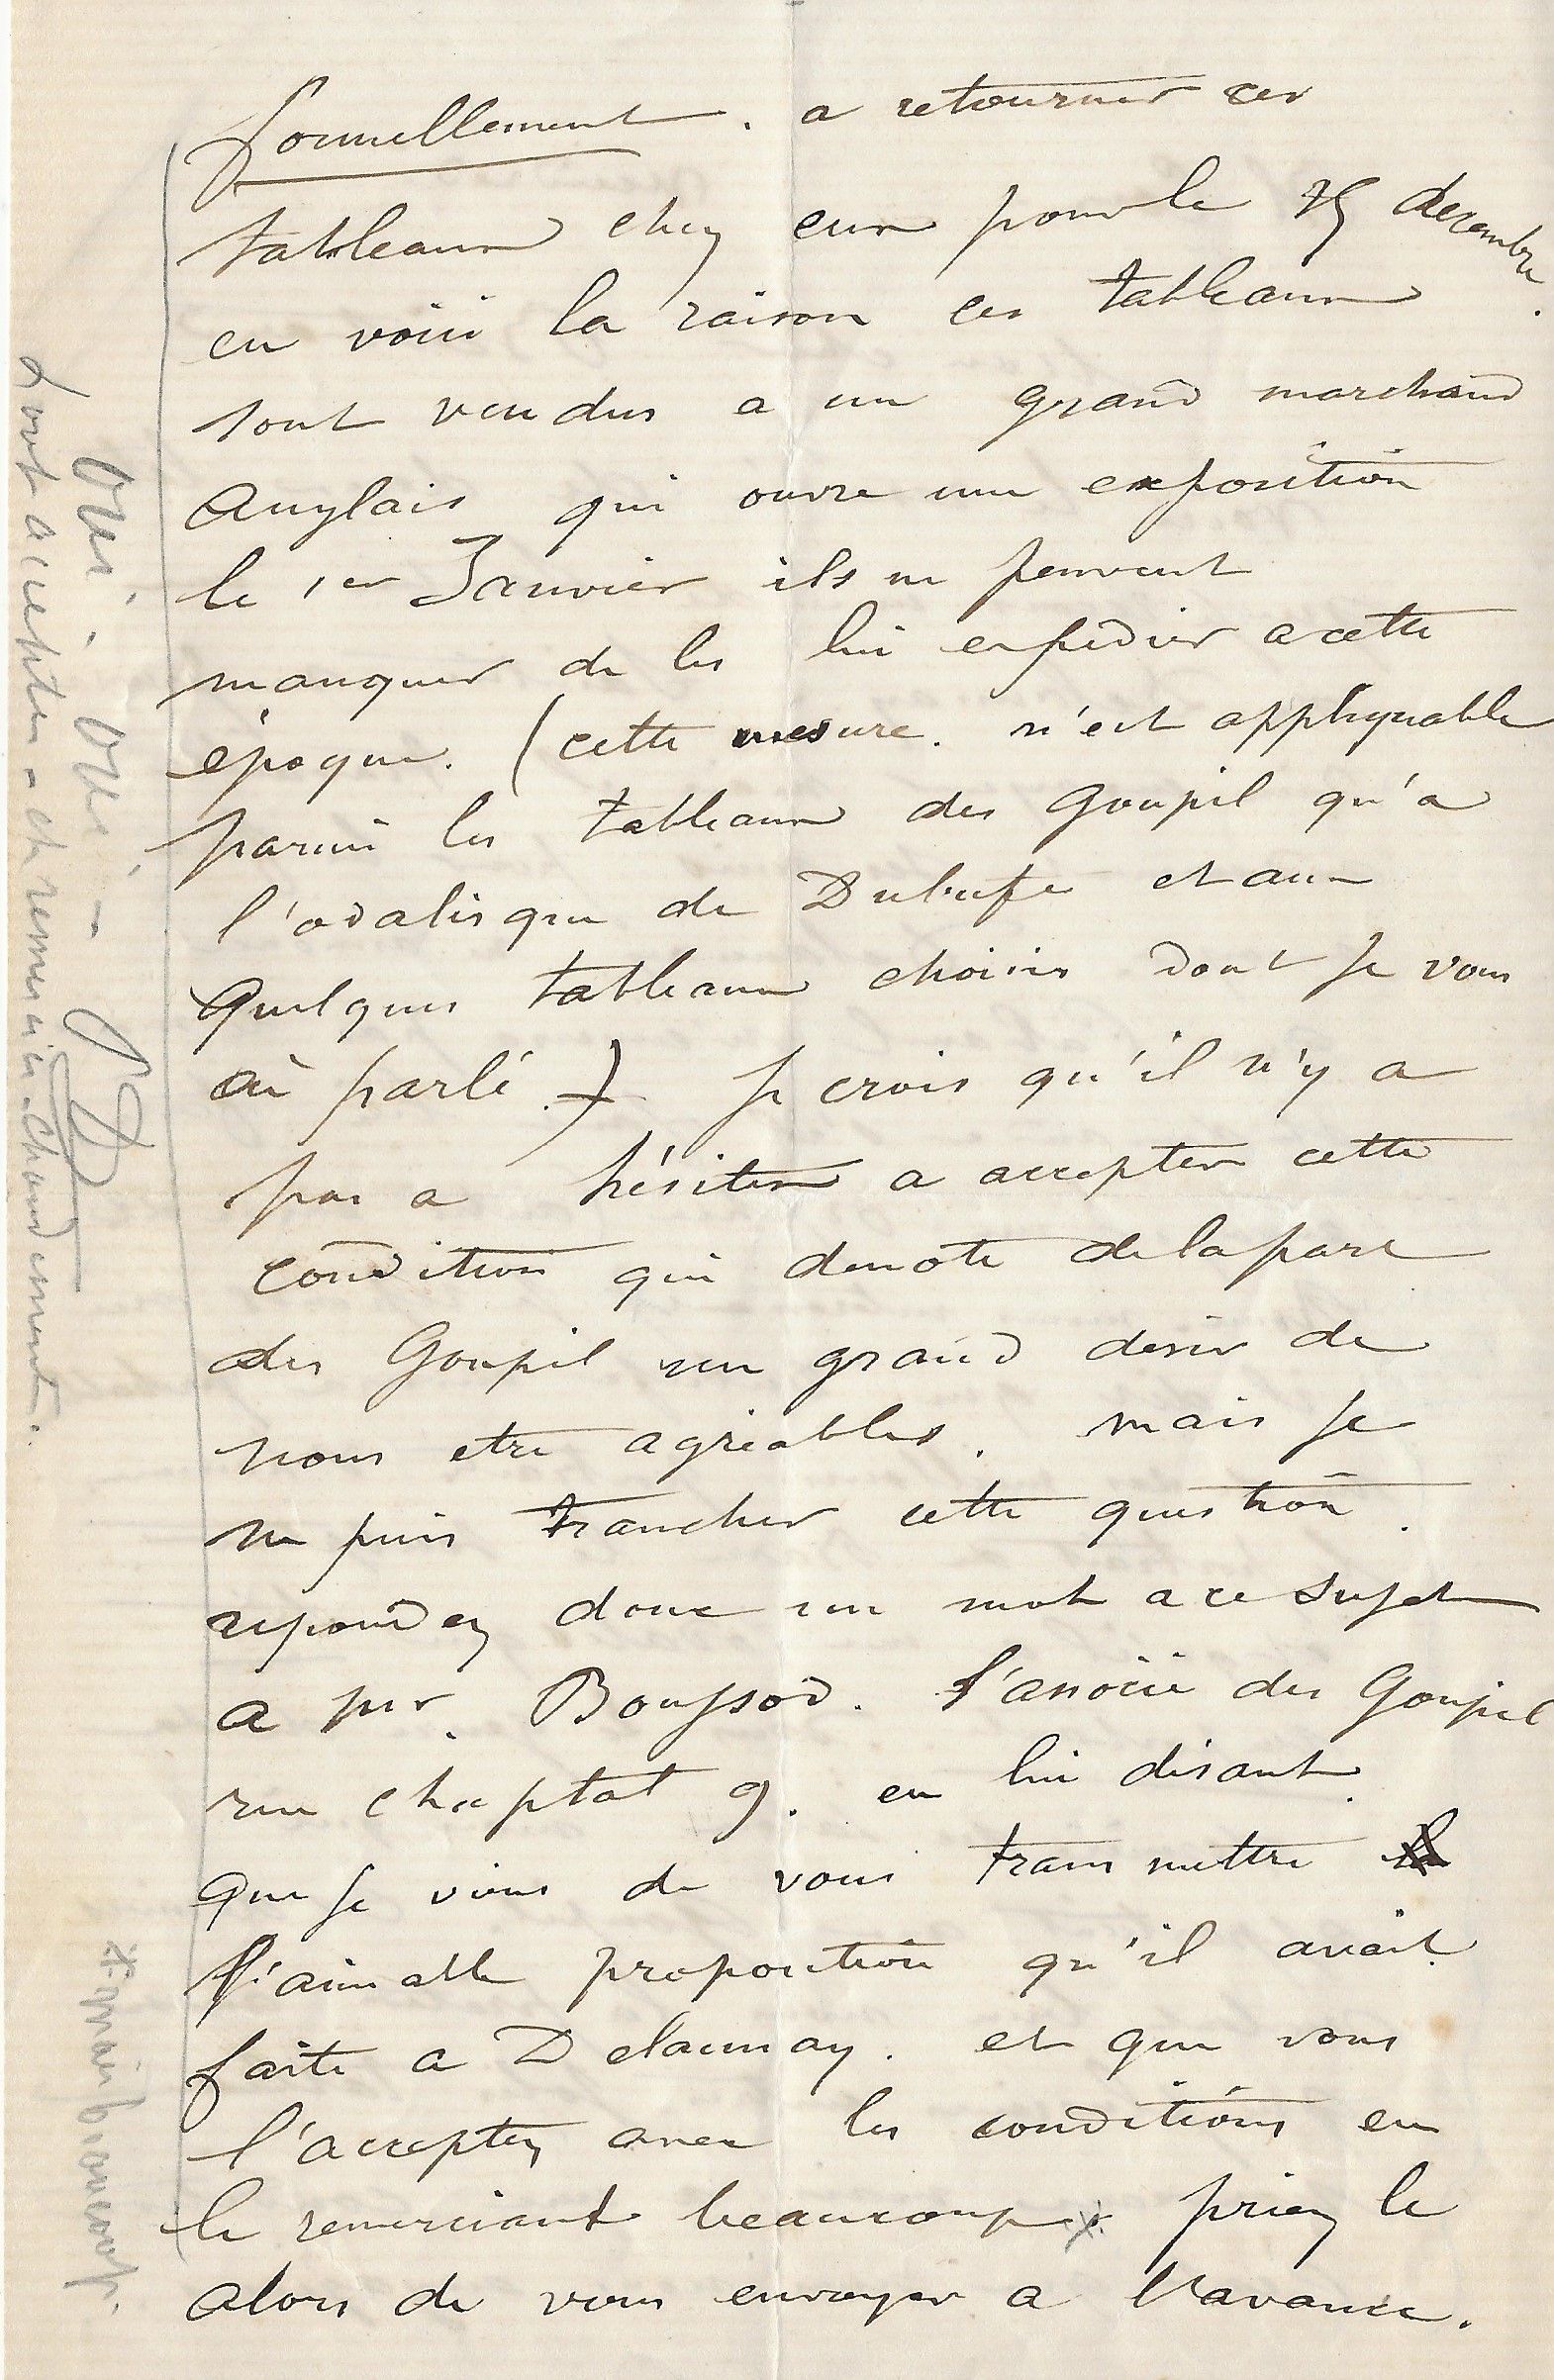 formellement. a retourner ces
tableaux chez eux pour le 25 decembre.
en voici la raison ces tableaux
sont vendus a un grand marchand
Anglais qui ouvre une exposition
le 1er Janvier ils ne peuvent
manquer de les lui expedier a cette
époque. (cette mesure. n'est appliquable
parmi les tableaux des Goupil qu'a
l'odalisque de Dubufe et aux
quelques tableaux choisis dont je vous
ai parlé.) Je crois qu'il n'y a
pas a hésiter a accepter cette
condition qui denote de la part
des Goupil un grand desir de
nous etre agréables. mais je
ne puis trancher cette question.
repondez donc un mot a ce sujet
a Mr. Boussod. l'associé des Goupil
rue Chaptal 9. en lui disant.
que je viens de vous transmettre
l'aimable proposition qu'il avait
faite a Delaunay. et que vous
l'acceptez avec les conditions en
le remerciant beaucoup x. priez le
alors de vous envoyer a l'avance.
Oui, Oui, –
Tout accepter – et remercier chaudement.